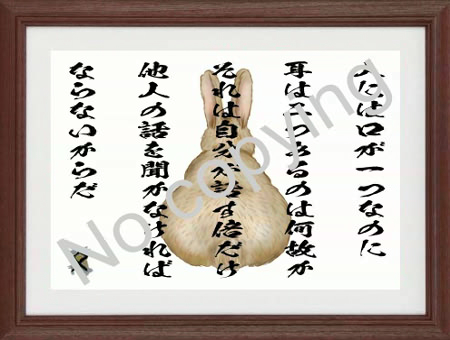 人には口が一つなのに
耳は二つあるのは何故か
それは自分が話す倍だけ
他人の話を聞かなければ
ならないからだ
No copying